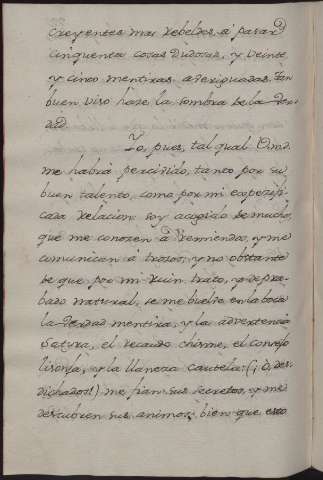 creyentes mas rebeldes, á pasar
cinquenta cosas dudosas, y veinte
y cinco mentiras averiguadas, tan
buen viso hase la sombra de la ver
dad.
Yo, pues, tal qual Vmd.
me habrá percivido, tanto por su
buen talento, como por mi
cada relacion, soy acogido de mucho,
que me conozen á remiendos, y me
comunican á trosos, y no obstante
de que por mi ruin trato, y depra-
bado natural, se me buelve en la boca
la verdad mentira, y la advertencia
satyra, el recaudo chisme, el consejo
lisonja, y la llaneza cautela: (¡ó, des
dichados!) me fian sus secretos, y me
descubren sus animos; bien que esto